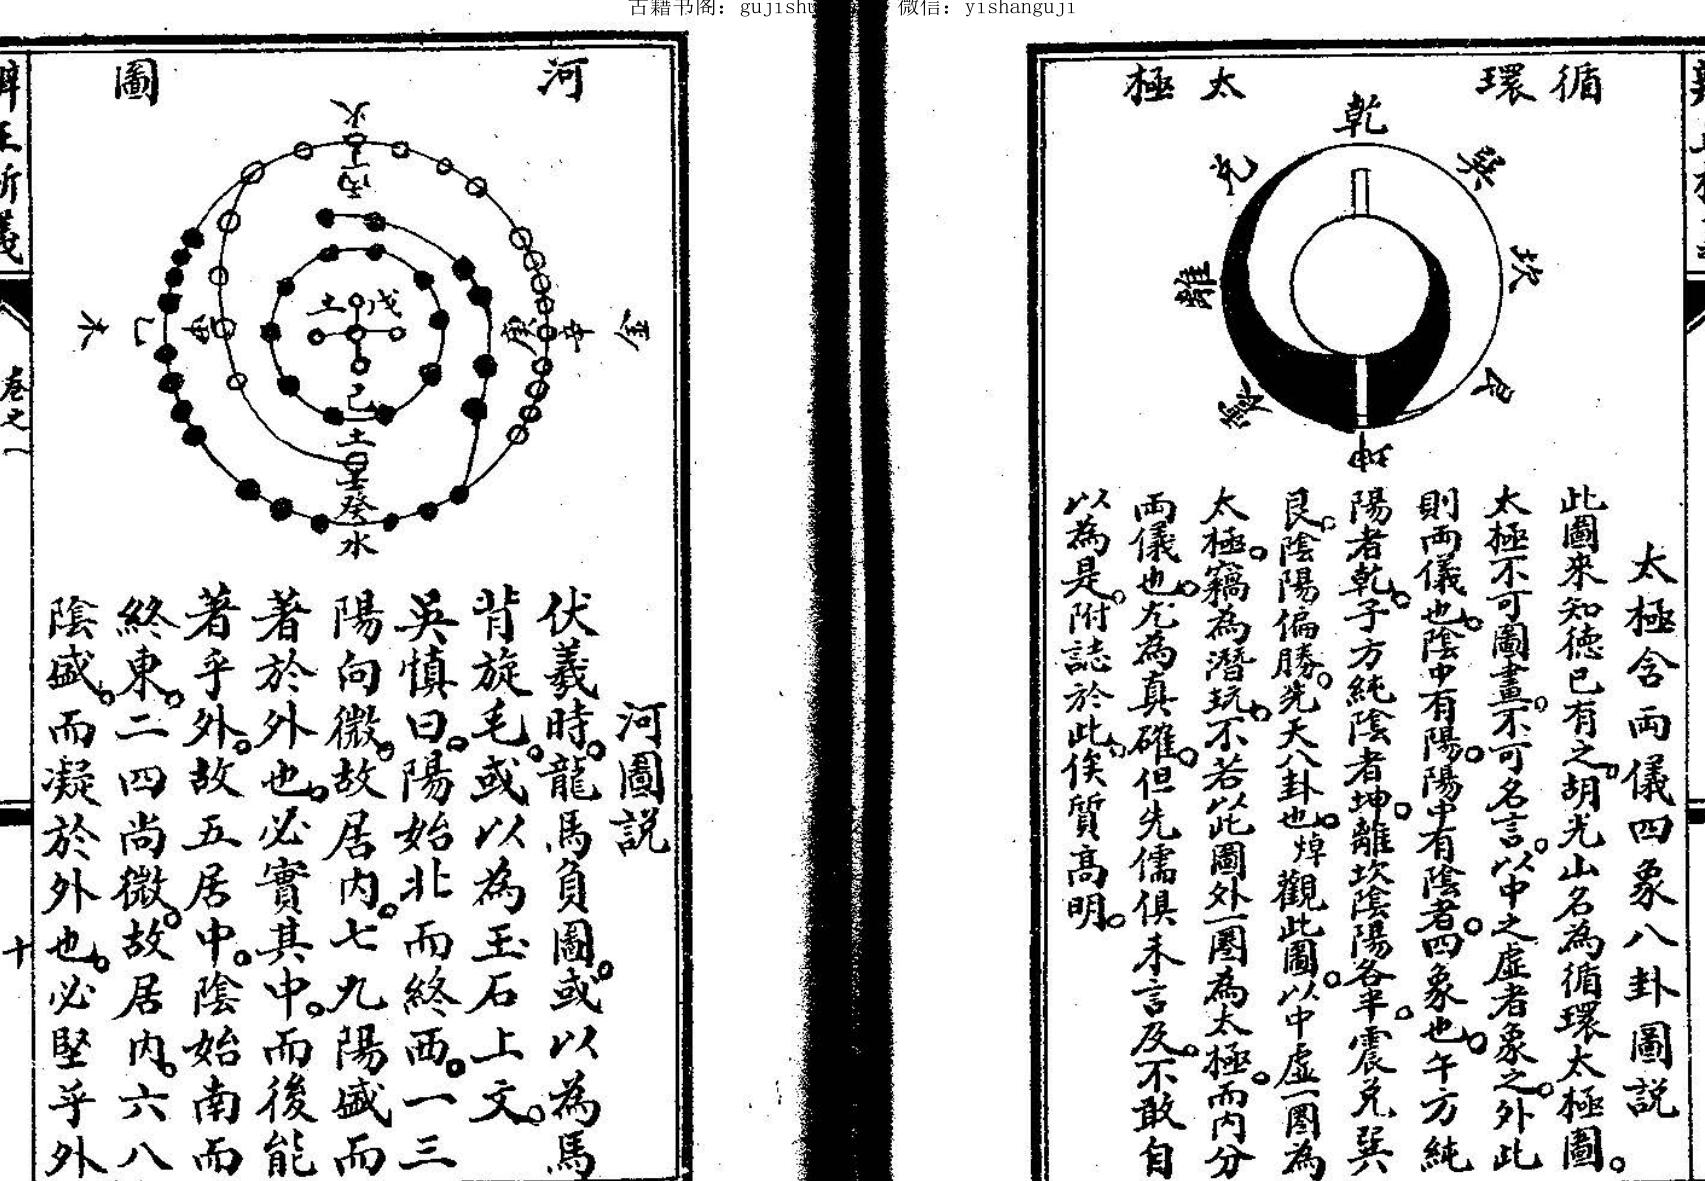 古籍书阁：gujishu 微信：yishanguji
循環太極
乾
兌
巽
離
坎
震
艮
坤
太極含兩儀四象八卦圖説
此圖來知德已有之胡光山名為循環太極圖。
太極不可圖畫。不可名言。以中之虛者象之。外此
則兩儀也。陰中有陽。陽中有陰者。四象也。午方純
陽者乾。子方純陰者坤。離坎陰陽各半。震兌巽
艮。陰陽偏勝。先天八卦也。焯觀此圖。以中虛一圈為
太極。竊為潛玩。不若以此圖外一圈為太極。而內分
兩儀也。尤為真確。但先儒俱未言及。不敢自
以為是。附誌於此。俟質高明。
河圖
火
丁
丙
土戊
木
乙
甲
庚
辛
金
己
土
壬
癸
水
河圖説
伏羲時。龍馬負圖。或以為馬
背旋毛。或以為玉石上文。
吳慎曰。陽始北而終西。一三
陽向微。故居內。七九陽盛而
著於外也。必實其中。而後能
著乎外。故五居中。陰始南而
終東。二四尚微。故居內。六八
陰盛。而凝於外也。必堅乎外
卷之一
十